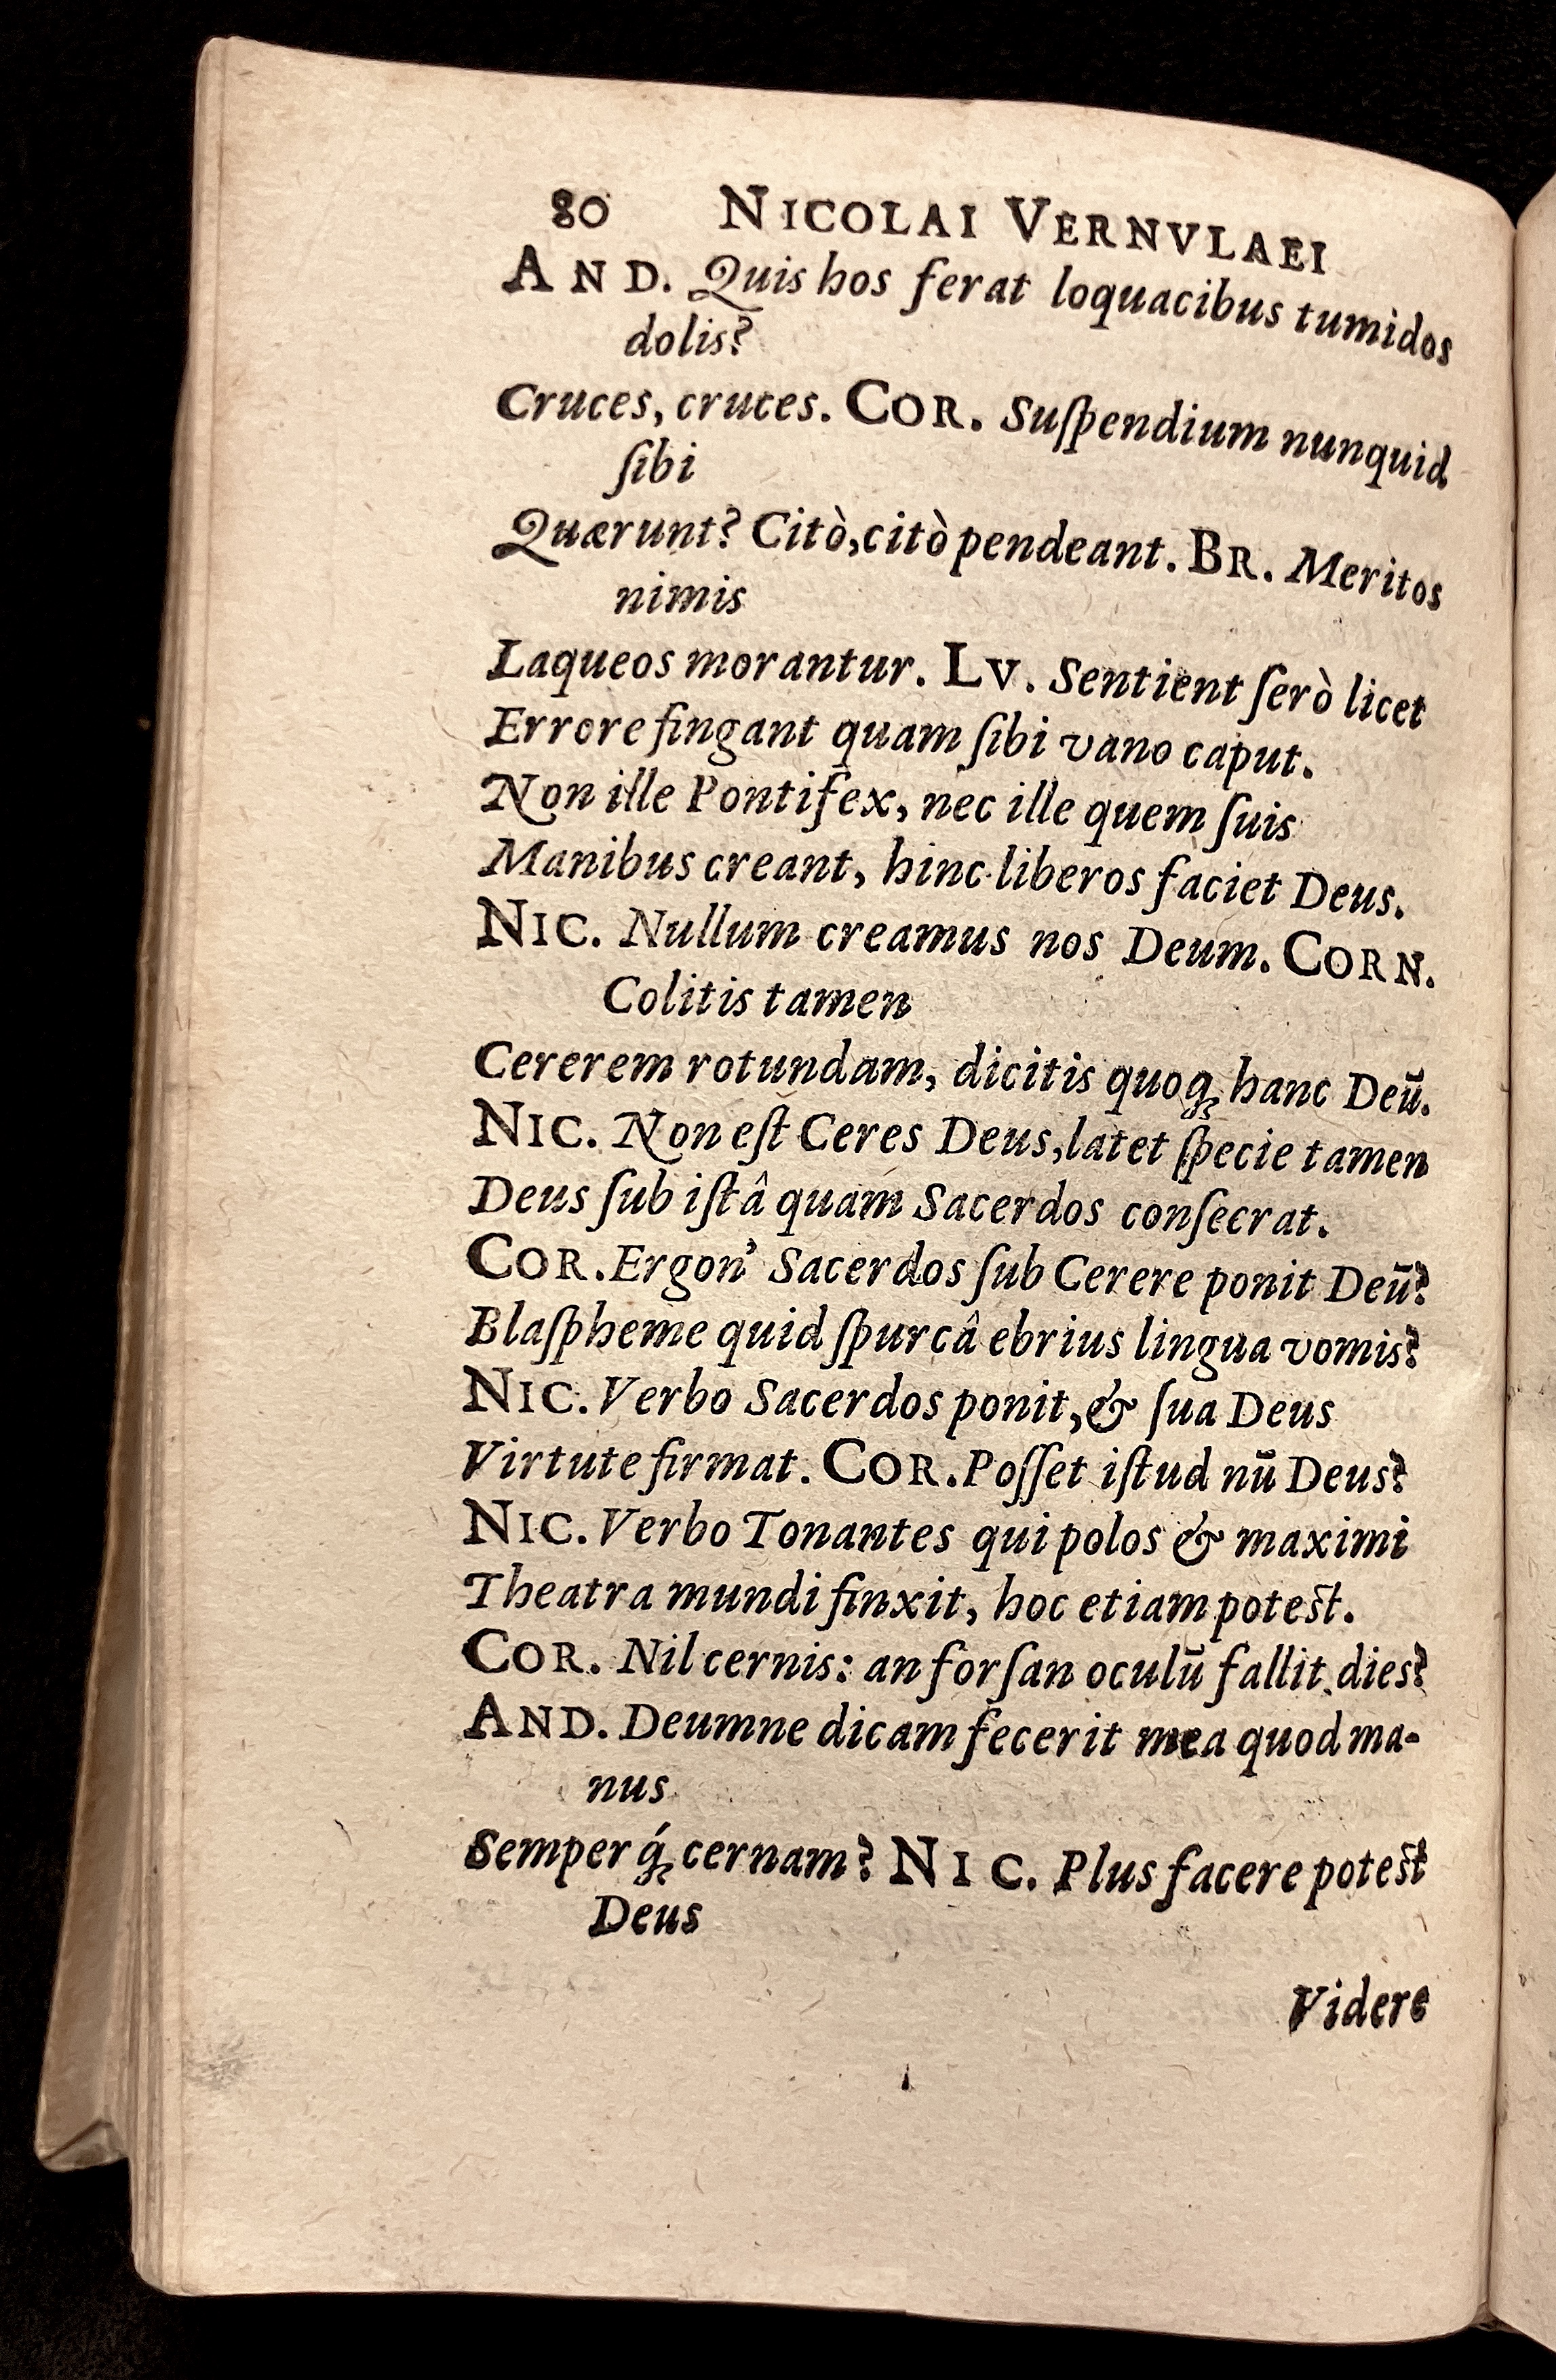 80 NICOLAI VERNVLAEI
AND. Quis hos ferat loquacibus tumidos
dolis?
Cruces, cruces. COR. Suſpendium nunquid
ſibi
Quærunt? Citò, citò pendeant. BR. Meritos
nimis
Laqueos morantur. LV. Sentient ſerò licet
Errore fingant quam ſibi vano caput.
Non ille Pontifex, nec ille quem ſuis
Manibus creant, hinc liberos faciet Deus.
NIC. Nullum creamus nos Deum. CORN.
Colitis tamen
Cererem rotundam, dicitis quoq; hanc Deū.
NIC. Non eſt Ceres Deus, latet ſpecie tamen
Deus ſub iſtâ quam Sacerdos conſecrat.
COR. Ergon' Sacerdos ſub Cerere ponit Deū?
Blaſpheme quid ſpurcâ ebrius lingua vomis?
NIC. Verbo Sacerdos ponit, & ſua Deus
Virtute firmat. COR. Poſſet iſtud nū Deus?
NIC. Verbo Tonantes qui polos & maximi
Theatra mundi finxit, hoc etiam poteſt.
COR. Nil cernis: an forſan oculū fallit dies?
AND. Deumne dicam fecerit mea quod ma-
nus
Semper q́; cernam? NIC. Plus facere poteſt
Deus
Videre